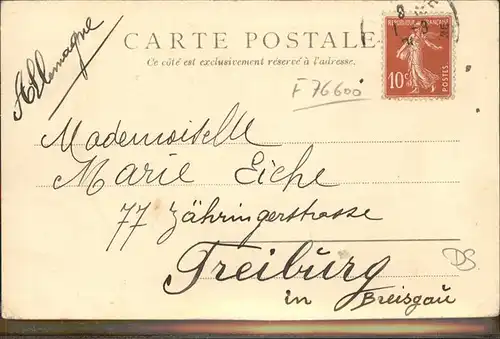 Allemagne
CARTE POSTALE
Ce côté est exclusivement réservé à l'adresse.
RÉPUBLIQUE FRANÇAISE
10c
POSTES
F 76600
Mademoiselle
Marie Eiche
77 Zähringerstrasse
Freiburg
in Breisgau
DS